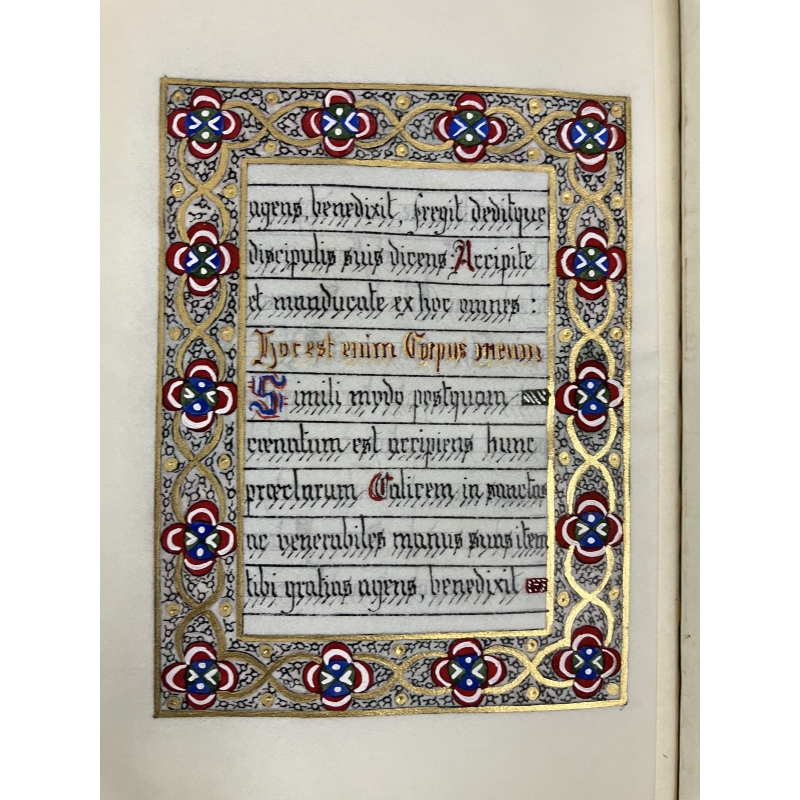 agens, benedixit, fregit deditque
discipulis suis dicens: Accipite
et manducate ex hoc omnes:
Hoc est enim Corpus meum
Simili modo postquam
cœnatum est accipiens hunc
præclarum Calicem in sanctas
ac venerabiles manus suas item
tibi gratias agens, benedixit